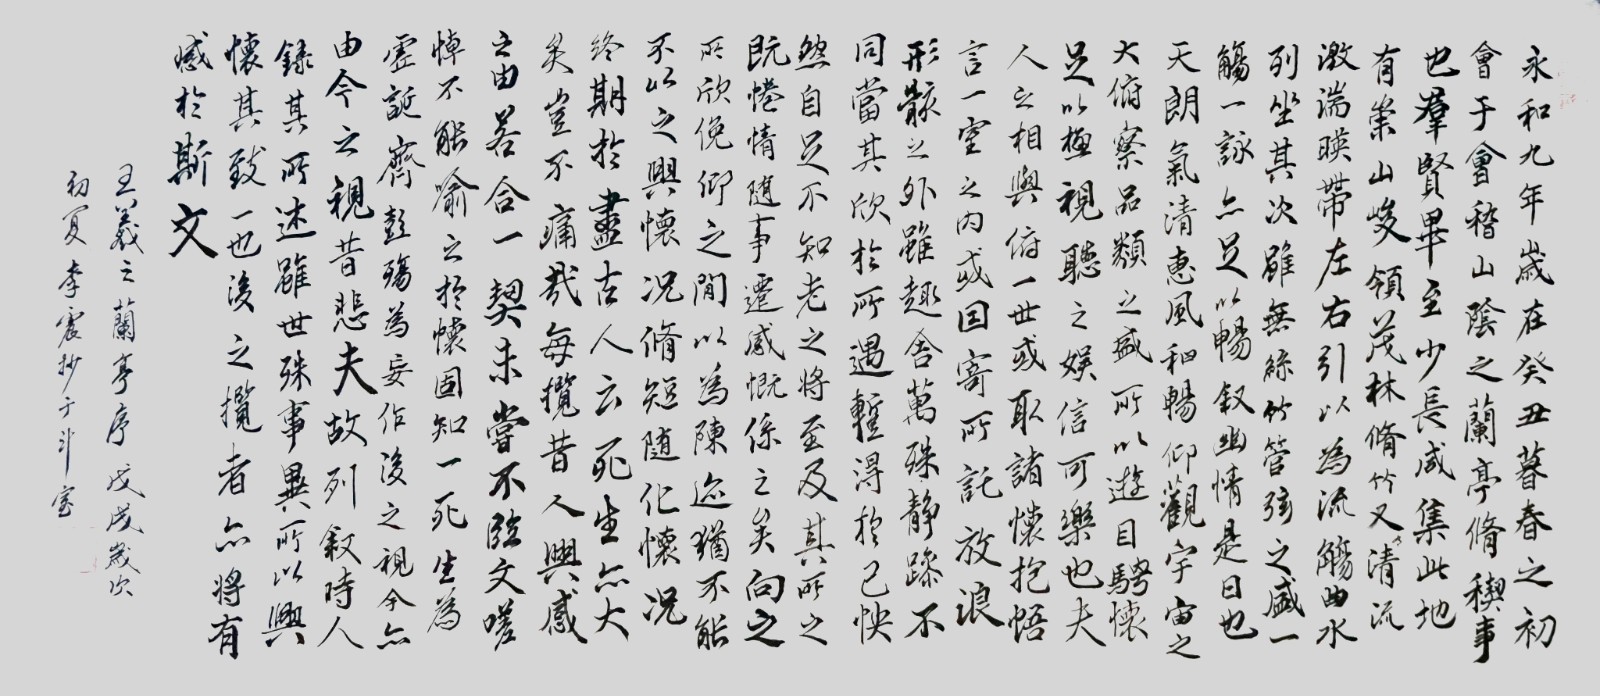 永和九年歲在癸丑暮春之初
會于會稽山陰之蘭亭脩稧事
也羣賢畢至少長咸集此地
有崇山峻領茂林脩竹又清流
激湍暎帶左右引以為流觴曲水
列坐其次雖無絲竹管弦之盛一
觴一詠亦足以暢叙幽情是日也
天朗氣清惠風和暢仰觀宇宙之
大俯察品類之盛所以遊目騁懷
足以極視聽之娛信可樂也夫
人之相與俯一世或取諸懷抱悟
言一室之內或因寄所託放浪
形骸之外雖趣舍萬殊靜躁不
同當其欣於所遇蹔得於己怏
然自足不知老之將至及其所之
既惓情随事遷感慨係之矣向之
所欣俛仰之間以為陳迹猶不能
不以之興懷况脩短随化懷况
終期於盡古人云死生亦大
矣豈不痛哉每攬昔人興感
之由若合一契未嘗不臨文嗟
悼不能喻之於懷固知一死生為
虛誕齊彭殤為妄作後之視今亦
由今之視昔悲夫故列叙時人
錄其所述雖世殊事異所以興
懷其致一也後之攬者亦將有
感於斯文
王羲之蘭亭序 戊戌歲次
初夏 李震抄于斗室